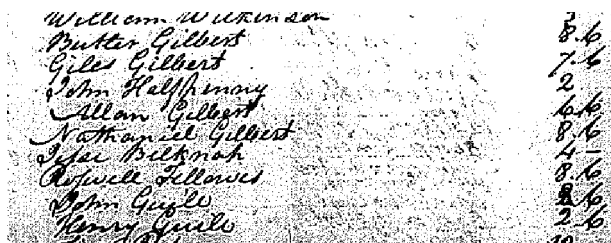 William Wilkinson 5
Butler Gilbert 8.6
Giles Gilbert 7.6
John Halfpenny 2
Allan Gilbert 6.6
Nathaniel Gilbert 8.6
Belknah 4 -
Roswell Fellowes 8.6
John Guile 8.6
Henry Guile 2.6